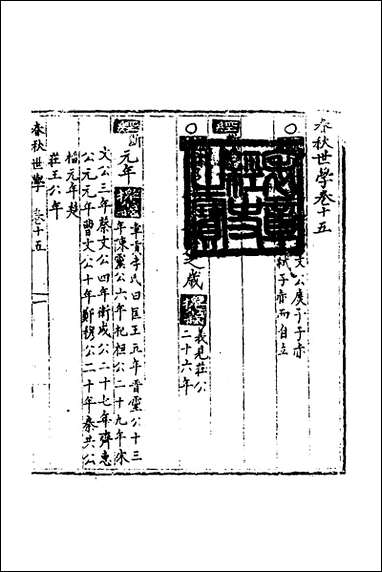 春秋世學卷十五
○
文公庶子子赤
弑子赤而自立
表章經史之寶
○
經
之歲
義見莊公
二十六年
經
元年
李氏曰匡王五年晉靈公十三
年陳靈公六年杞桓公二十九年宋
文公三年蔡文公四年衛成公二十七年齊惠
公元元年曹文公十年鄭穆公二十年秦共公
稻元年楚
莊王六年
春秋世學 卷十五 一